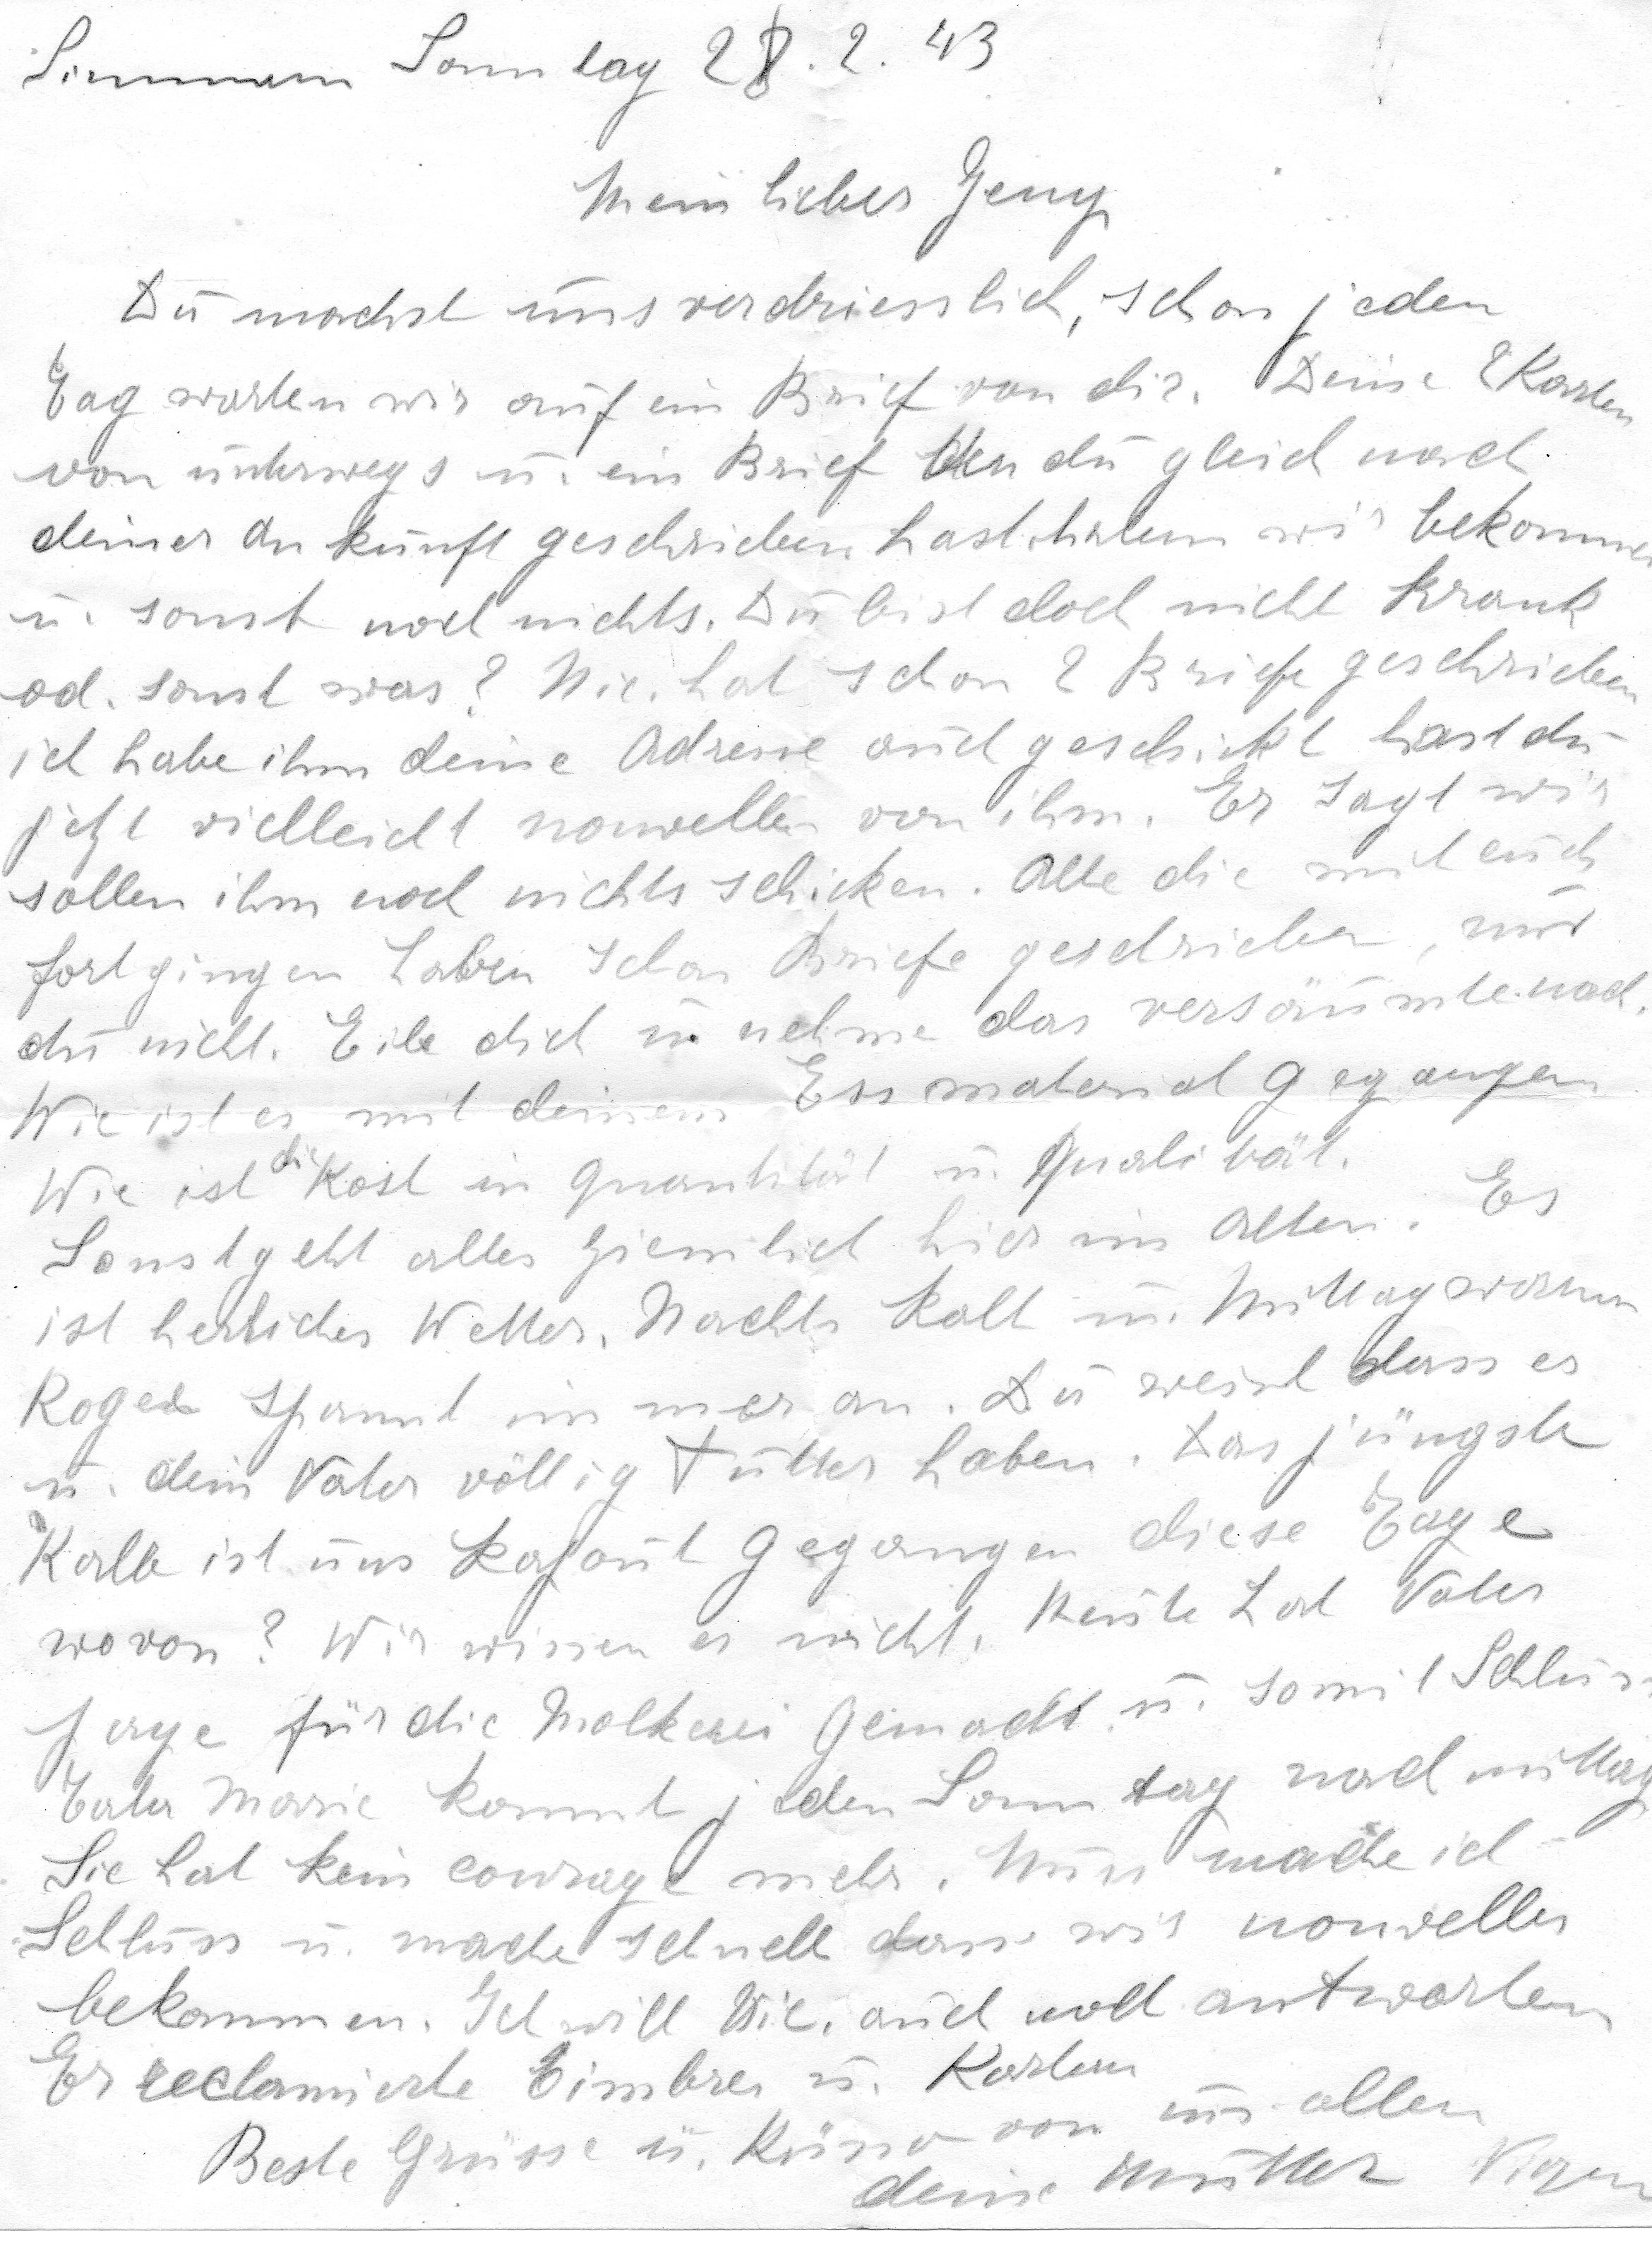 Sonntag 28.2.43
Mein lieber Jeny
Du machst uns verdriesslich, schon jeden
Tag warten wir auf ein Brief von dir. Deine 2 Karten
von unterwegs u. ein Brief den du gleich nach
deiner Ankunft geschrieben hast haben wir bekommen
u. sonst noch nichts. Du bist doch nicht krank
od. sonst was? Nic. hat schon 2 Briefe geschrieben
ich habe ihm deine Adresse auch geschickt hast du
jetzt vielleicht nouvellen von ihm. Er sagt wir
sollen ihm noch nichts schicken. Alle die mit euch
fortgingen haben schon Briefe geschrieben, nur
du nicht. Eile dich u nehme das versäumte nach.
Wie ist es mit deinem Essmaterial gegangen
Wie ist die Kost in Quantität u. Qualität.
Sonst geht alles ziemlich hier im Alten. Es
ist herliches Wetter. Nachts kalt u. Mittag warm
Roger spannt immer an. Du weist dass er
u. dein Vater völlig Futter haben. Das jüngste
Kalb ist uns kaput gegangen diese Tage
wovon? Wir wissen es nicht. Heute hat Vater
für die Molkerei gemacht u. somit Schluss
Tata Marie kommt jeden Sonntag nachmittag
Sie hat kein courage mehr. Nun mache ich
Schluss u. mache schnell dass wir nouvelles
bekommen. Ich will Nic. auch noch antworten
Er reclamierte Timbres u. Karten
Beste Grüsse u. Küsse von uns allen
deine Mutter